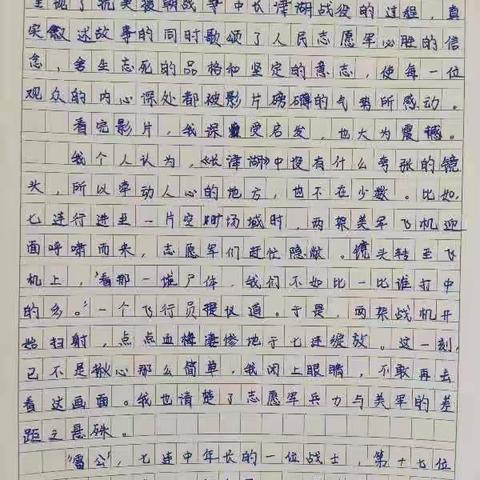 呈现了抗美援朝战争中长津湖战役的过程，真
实叙述故事的同时歌颂了人民志愿军必胜的信
念，舍生忘死的品格和坚定的意志，使每一位
观众的内心深处都被影片磅礴的气势所感动。
看完影片，我深受启发，也大为震撼。
我个人认为，《长津湖》中没有什么夸张的镜
头，所以牵动人心的地方，也不在少数。比如，
七连行进至一片空旷场域时，两架美军飞机迎
面呼啸而来，志愿军们赶忙隐蔽。镜头转至飞
机上，“看那一堆尸体，我们不如比一比谁打中
的多。”一个飞行员提议道。于是，两架战机开
始扫射，点点血梅凄惨地于七连绽放。这一刻，
已不是揪心那么简单，我闭上眼睛，不敢再去
看这画面。我也清楚了志愿军兵力与美军的差
距之悬殊。
“雷公”，七连中年长的一位战士，第十七位